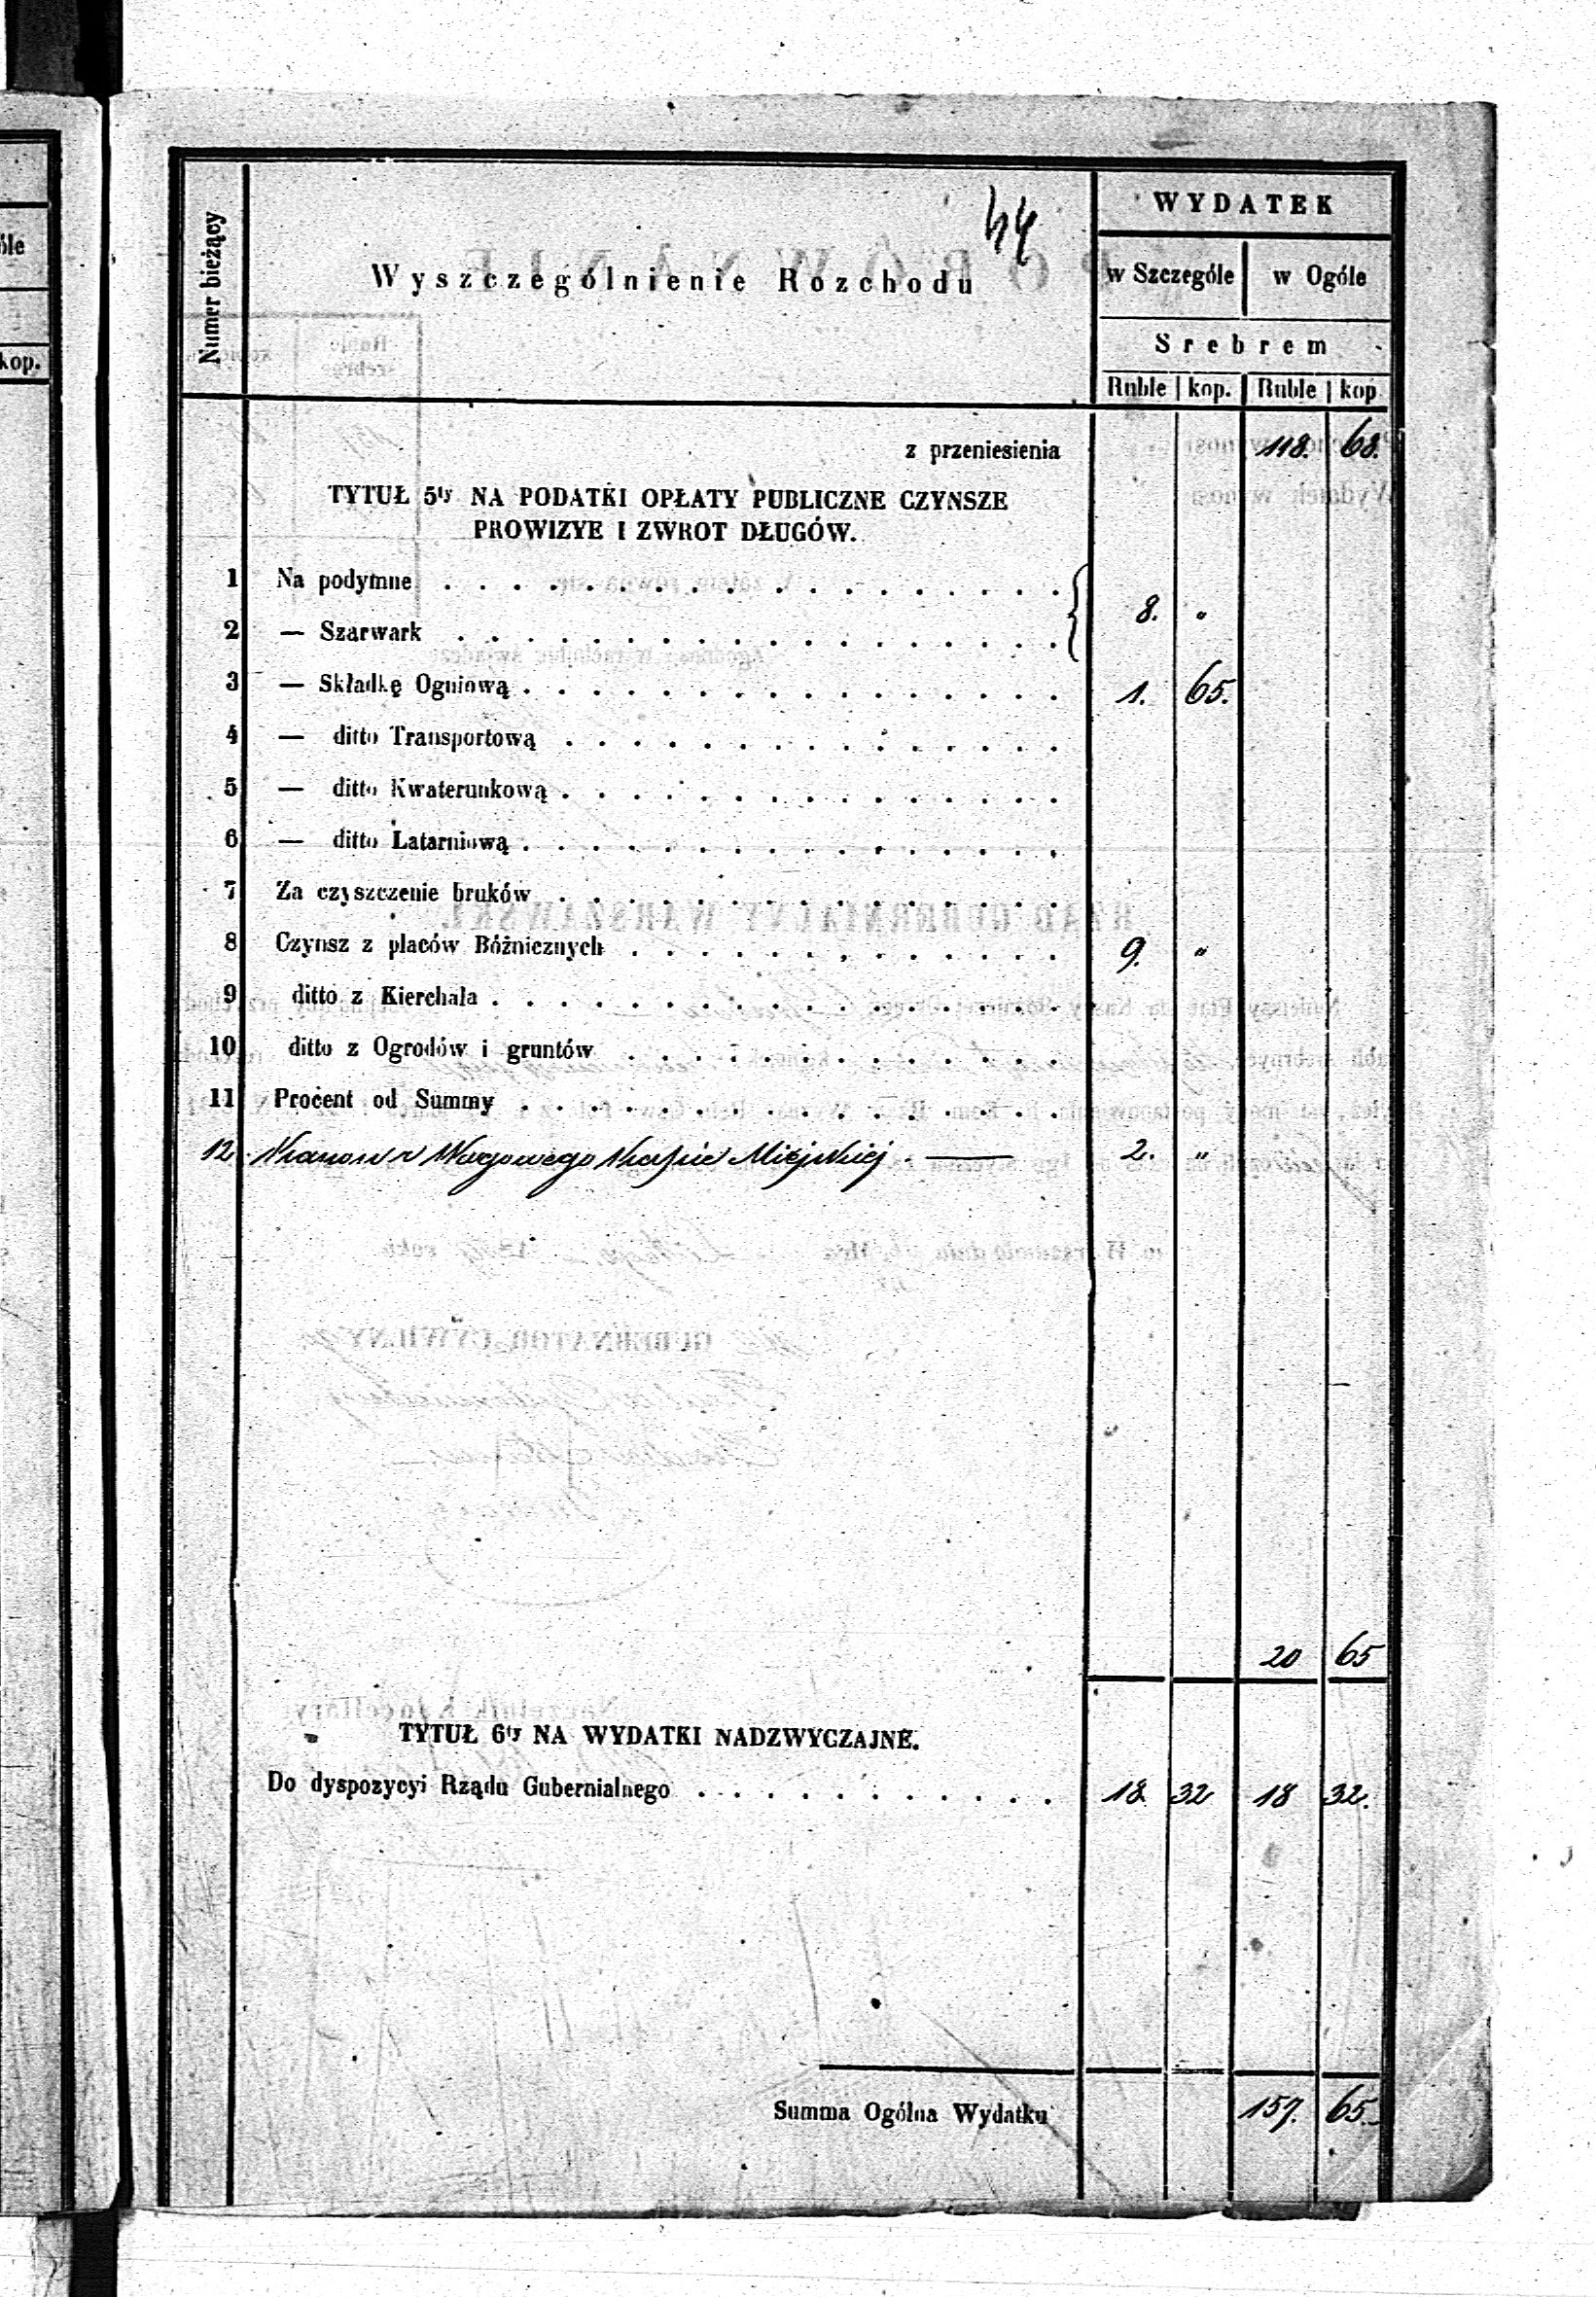 44
Numer bieżący
Wyszczególnienie Rozchodu
WYDATEK
w Szczególe w Ogóle
Srebrem
Ruble kop. Ruble kop
z przeniesienia 118. 68.
TYTUŁ 5ty NA PODATKI OPŁATY PUBLICZNE CZYNSZE
PROWIZYE I ZWROT DŁUGÓW.
1 Na podymne
8. "
2 — Szarwark
3 — Składkę Ogniową 1. 65.
4 — ditto Transportową
5 — ditto Kwaterunkową
6 — ditto Latarniową
7 Za czyszczenie bruków
8 Czynsz z placów Bóżnicznych 9. "
9 ditto z Kierchala
10 ditto z Ogrodów i gruntów
11 Procent od Summy
12 Wagowego Kassie Miejskiej 2. "
20 65
TYTUŁ 6ty NA WYDATKI NADZWYCZAJNE.
Do dyspozycyi Rządu Gubernialnego 18. 32 18 32.
Summa Ogólna Wydatku 157. 65.
óle
kop.